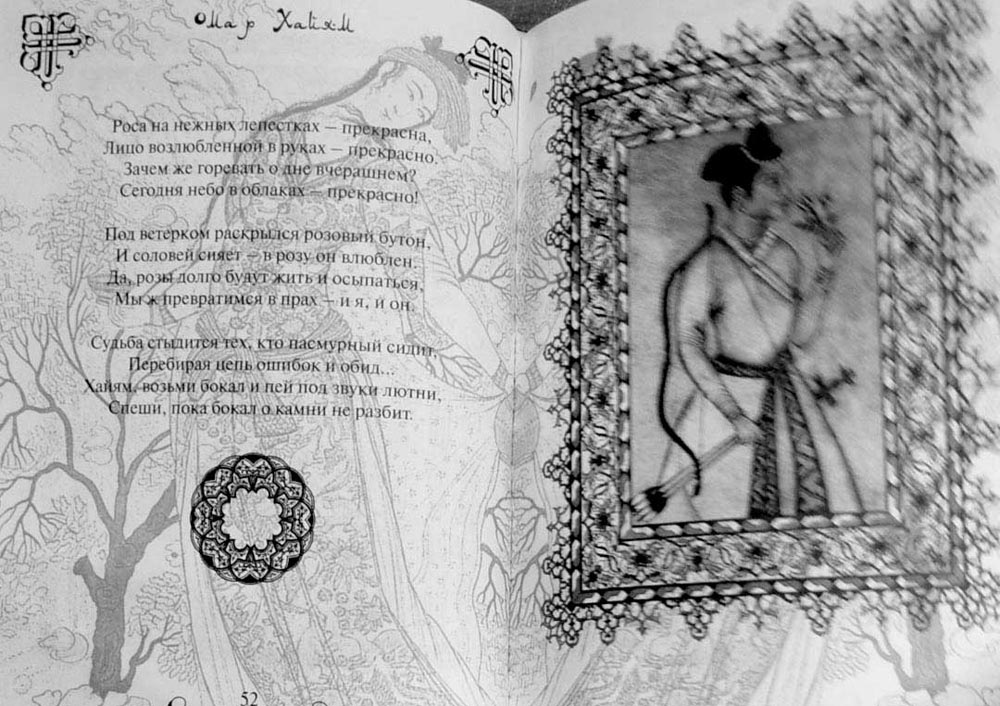 Омар Хайям
Роса на нежных лепестках – прекрасна,
Лицо возлюбленной в руках – прекрасно.
Зачем же горевать о дне вчерашнем?
Сегодня небо в облаках – прекрасно!
Под ветерком раскрылся розовый бутон,
И соловей сияет – в розу он влюблен.
Да, розы долго будут жить и осыпаться,
Мы ж превратимся в прах – и я, и он.
Судьба стыдится тех, кто пасмурный сидит,
Перебирая цепь ошибок и обид...
Хайям, возьми бокал и пей под звуки лютни,
Спеши, пока бокал о камни не разбит.
52